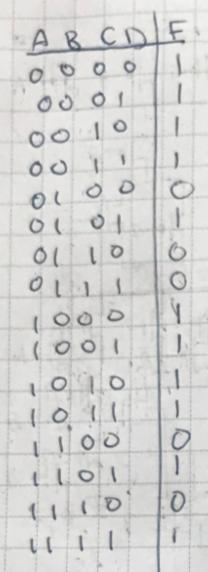 A B C D F
0 0 0 0 1
0 0 0 1 1
0 0 1 0 1
0 0 1 1 1
0 1 0 0 0
0 1 0 1 1
0 1 1 0 0
0 1 1 1 0
1 0 0 0 1
1 0 0 1 1
1 0 1 0 1
1 0 1 1 1
1 1 0 0 0
1 1 0 1 1
1 1 1 0 0
1 1 1 1 1